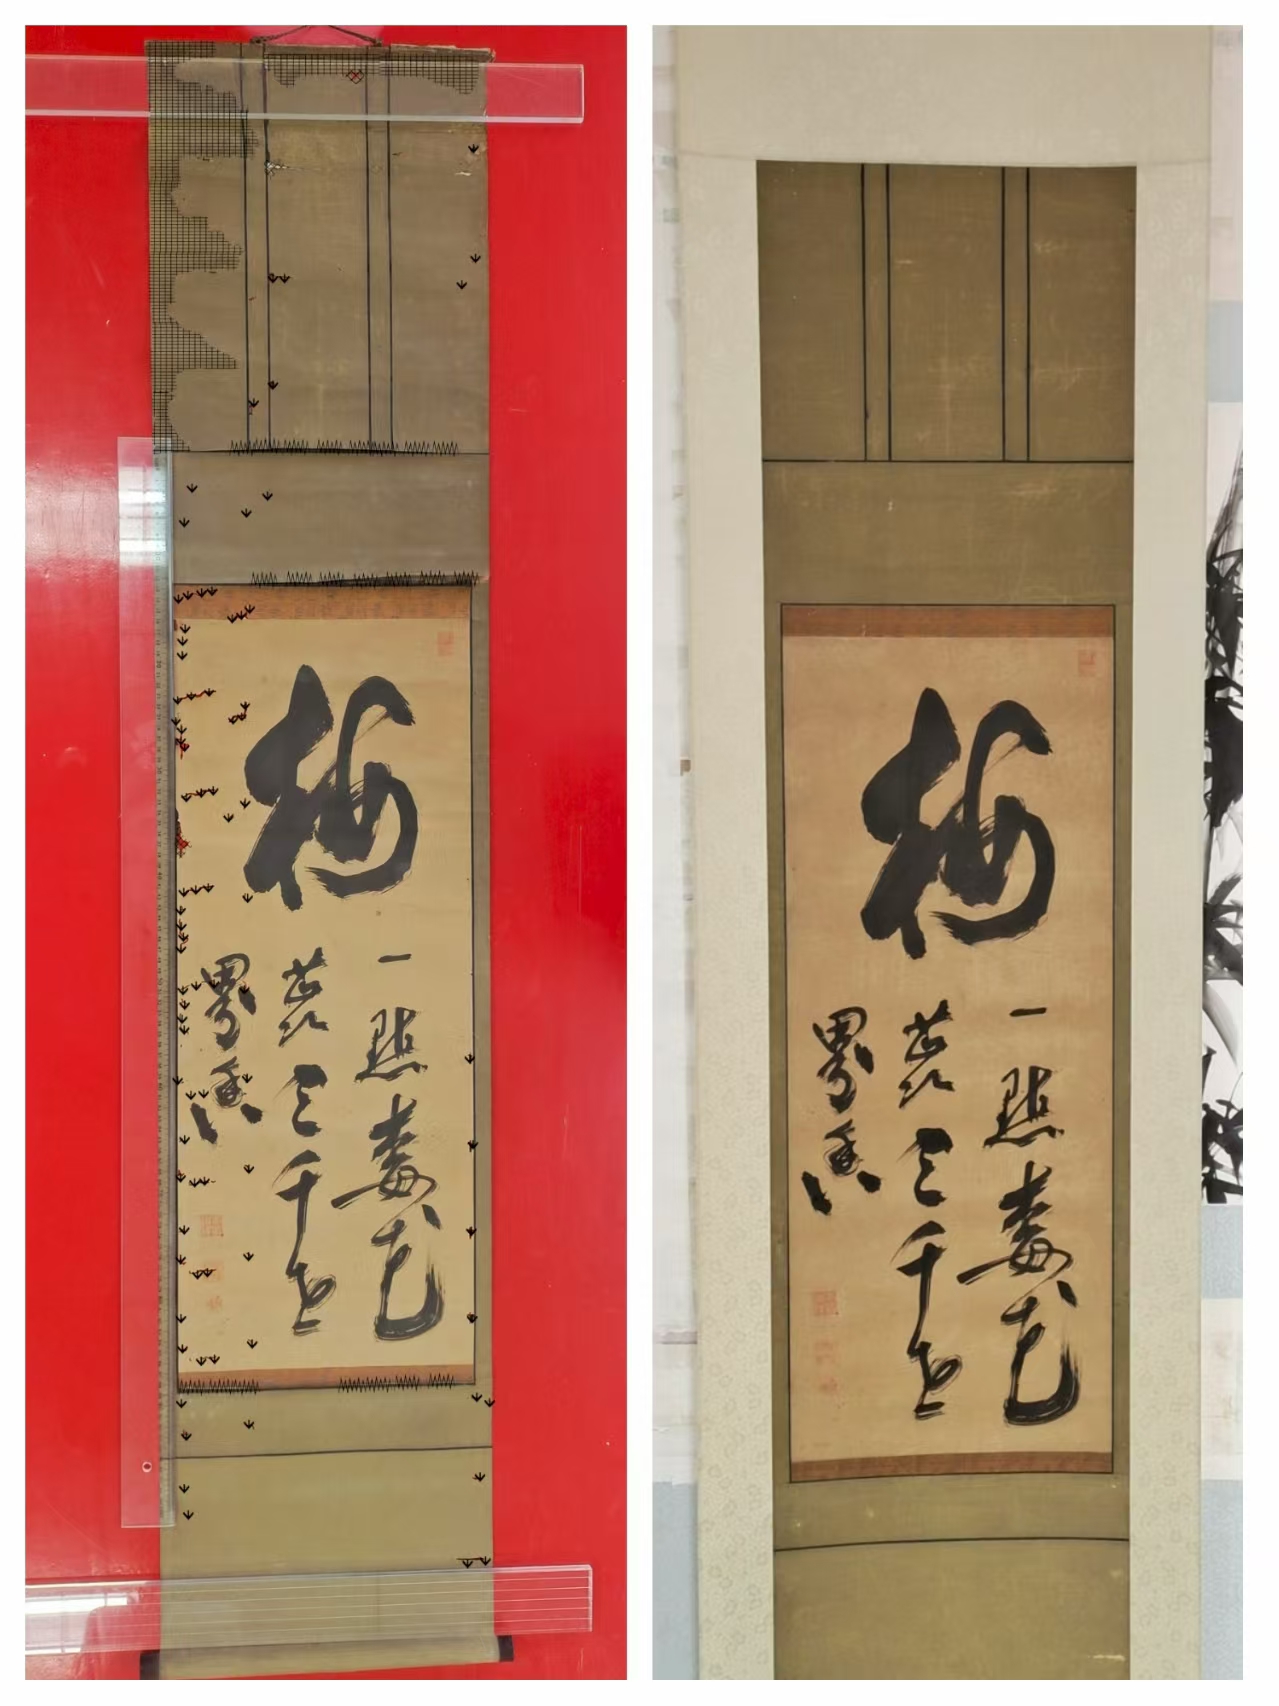 梅
一點梅花
蕊三千世
界香
梅
一點梅花
蕊三千世
界香